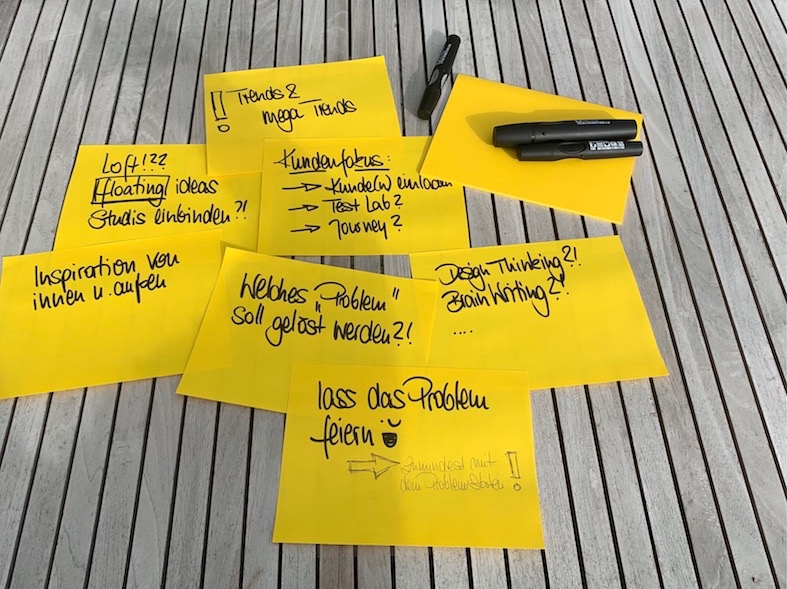 ! Trends &
mega Trends
Loft!??
floating ideas
Studis einbinden?!
Kundenfokus:
→ Kunde(n) einladen
→ Test Lab?
→ Journey?
Inspiration von
innen u. außen
Welches "Problem"
soll gelöst werden?!
Design Thinking?!
Brain Writing?!
....
lass das Problem
feiern
→ zumindest mit
dem Problem starten !